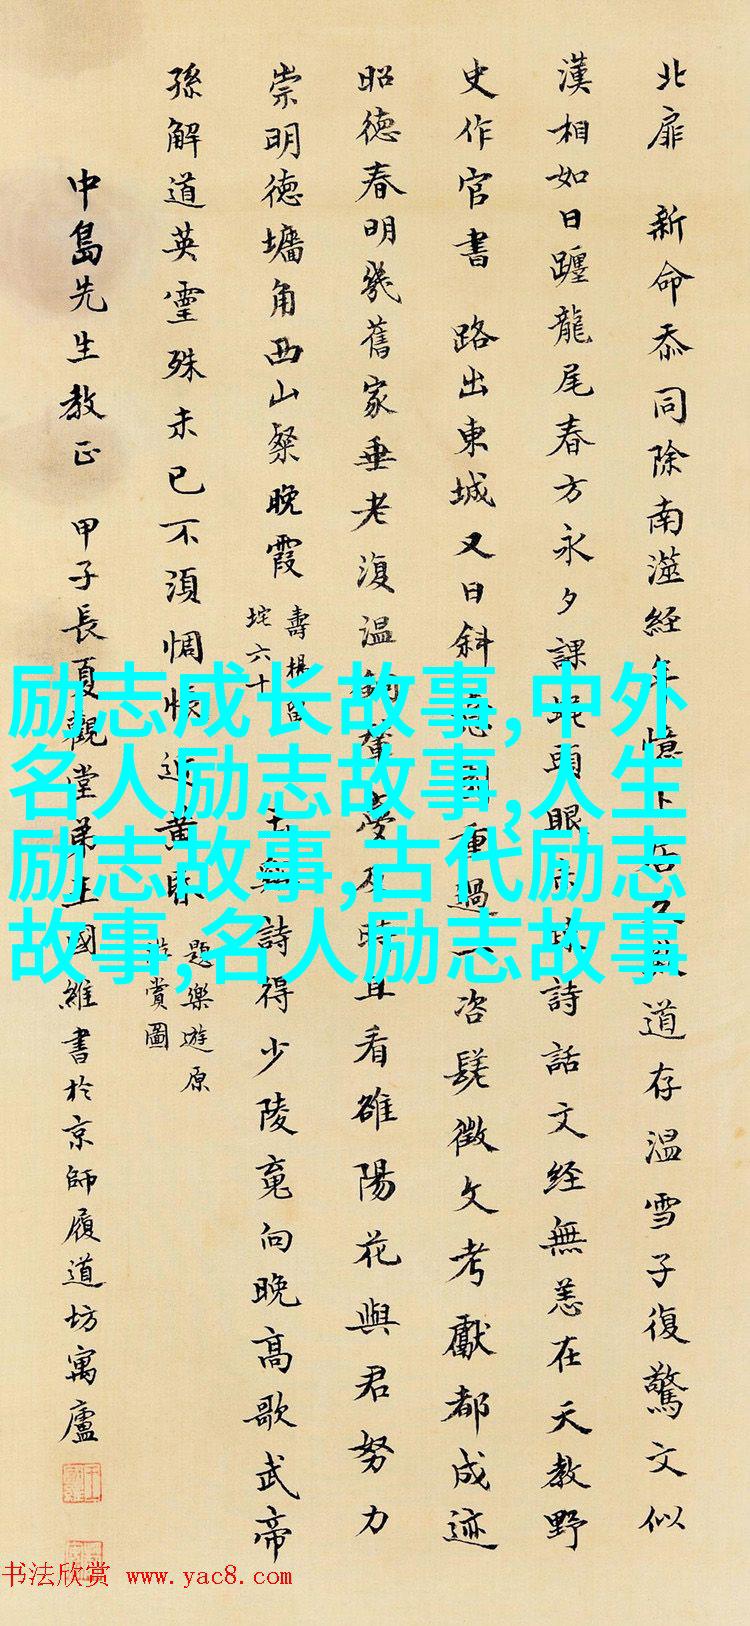 北扉 新命忝同除南滋經年憶卜居 道存温雪子復驚文似
漢相如日躔龍尾春方永夕課蚖頭眼未 詩話文経無恙在天教野
史作官書 路出東城又日斜 重過一咨髭徵文考獻都成迹
昭德春明幾舊家垂老復温 輦夢及時且看雒陽花與君努力
崇明德墉角西山粲晚霞
壽楊留
垞六十
無詩得少陵竟向晚高歌武帝
孫解道英霊殊未已不須惆悵近黄昏
題樂遊原
游賞圖
中島先生教正 甲子長夏觀堂弟王國維書於京師履道坊寓廬
励志成长故事,中外
名人励志故事,人生
励志故事,古代励志
故事,名人励志故事
书法欣赏 www.yac8.com